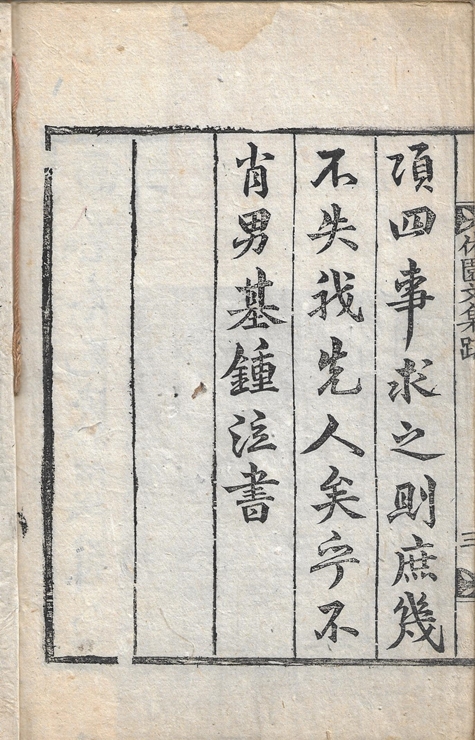 項四事求之則庶幾
不失我先人矣乎不
肖男基鍾泣書
文集跋
三